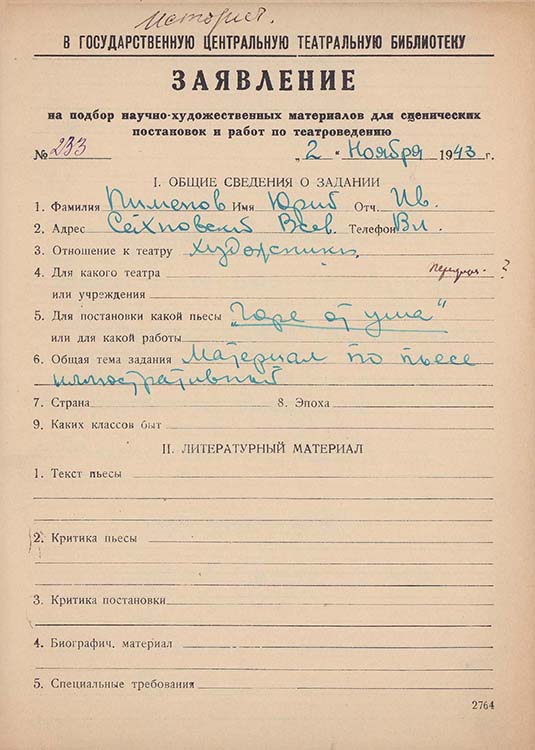 История.
В ГОСУДАРСТВЕННУЮ ЦЕНТРАЛЬНУЮ ТЕАТРАЛЬНУЮ БИБЛИОТЕКУ
ЗАЯВЛЕНИЕ
на подбор научно-художественных материалов для сценических
постановок и работ по театроведению
№ 233 „2“ Ноября 1943 г.
I. ОБЩИЕ СВЕДЕНИЯ О ЗАДАНИИ
1. Фамилия Пименов Имя Юрий Отч. Ив.
2. Адрес Всев. Телефон Вл.
3. Отношение к театру художник
4. Для какого театра
или учреждения
5. Для постановки какой пьесы „Горе от ума“
или для какой работы
6. Общая тема задания Материал по пьесе
иллюстративный
7. Страна 8. Эпоха
9. Каких классов быт
II. ЛИТЕРАТУРНЫЙ МАТЕРИАЛ
1. Текст пьесы
2. Критика пьесы
3. Критика постановки
4. Биографич. материал
5. Специальные требования
2764